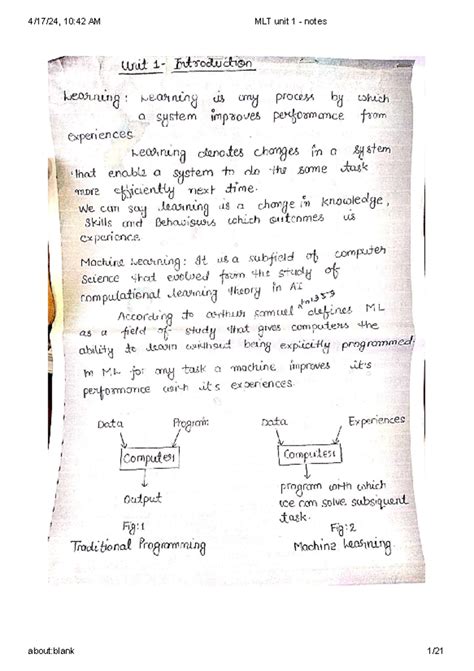 4/17/24, 10:42 AM MLT unit 1 - notes
Unit 1- Introduction
Learning: Learning is any process by which
a system improves performance from
experiences.
Learning denotes changes in a system
that enable a system to do the same task
more efficiently next time.
We can say learning is a change in knowledge,
skills and Behaviours which outcomes is
experience.
Machine Learning: It is a subfield of computer
science that evolved from the study of
computational learning theory in AI
in 1959
According to arthur samuel defines ML
as a field of study that gives computers the
ability to learn without being explicitly programmed.
In ML for any task a machine improves it's
performance with it's experiences.
Data Program Data Experiences
Computer Computer
Output program with which
we can solve subsiquent
task.
Fig:1 Fig:2
Traditional Programming Machine Learning.
about:blank 1/21